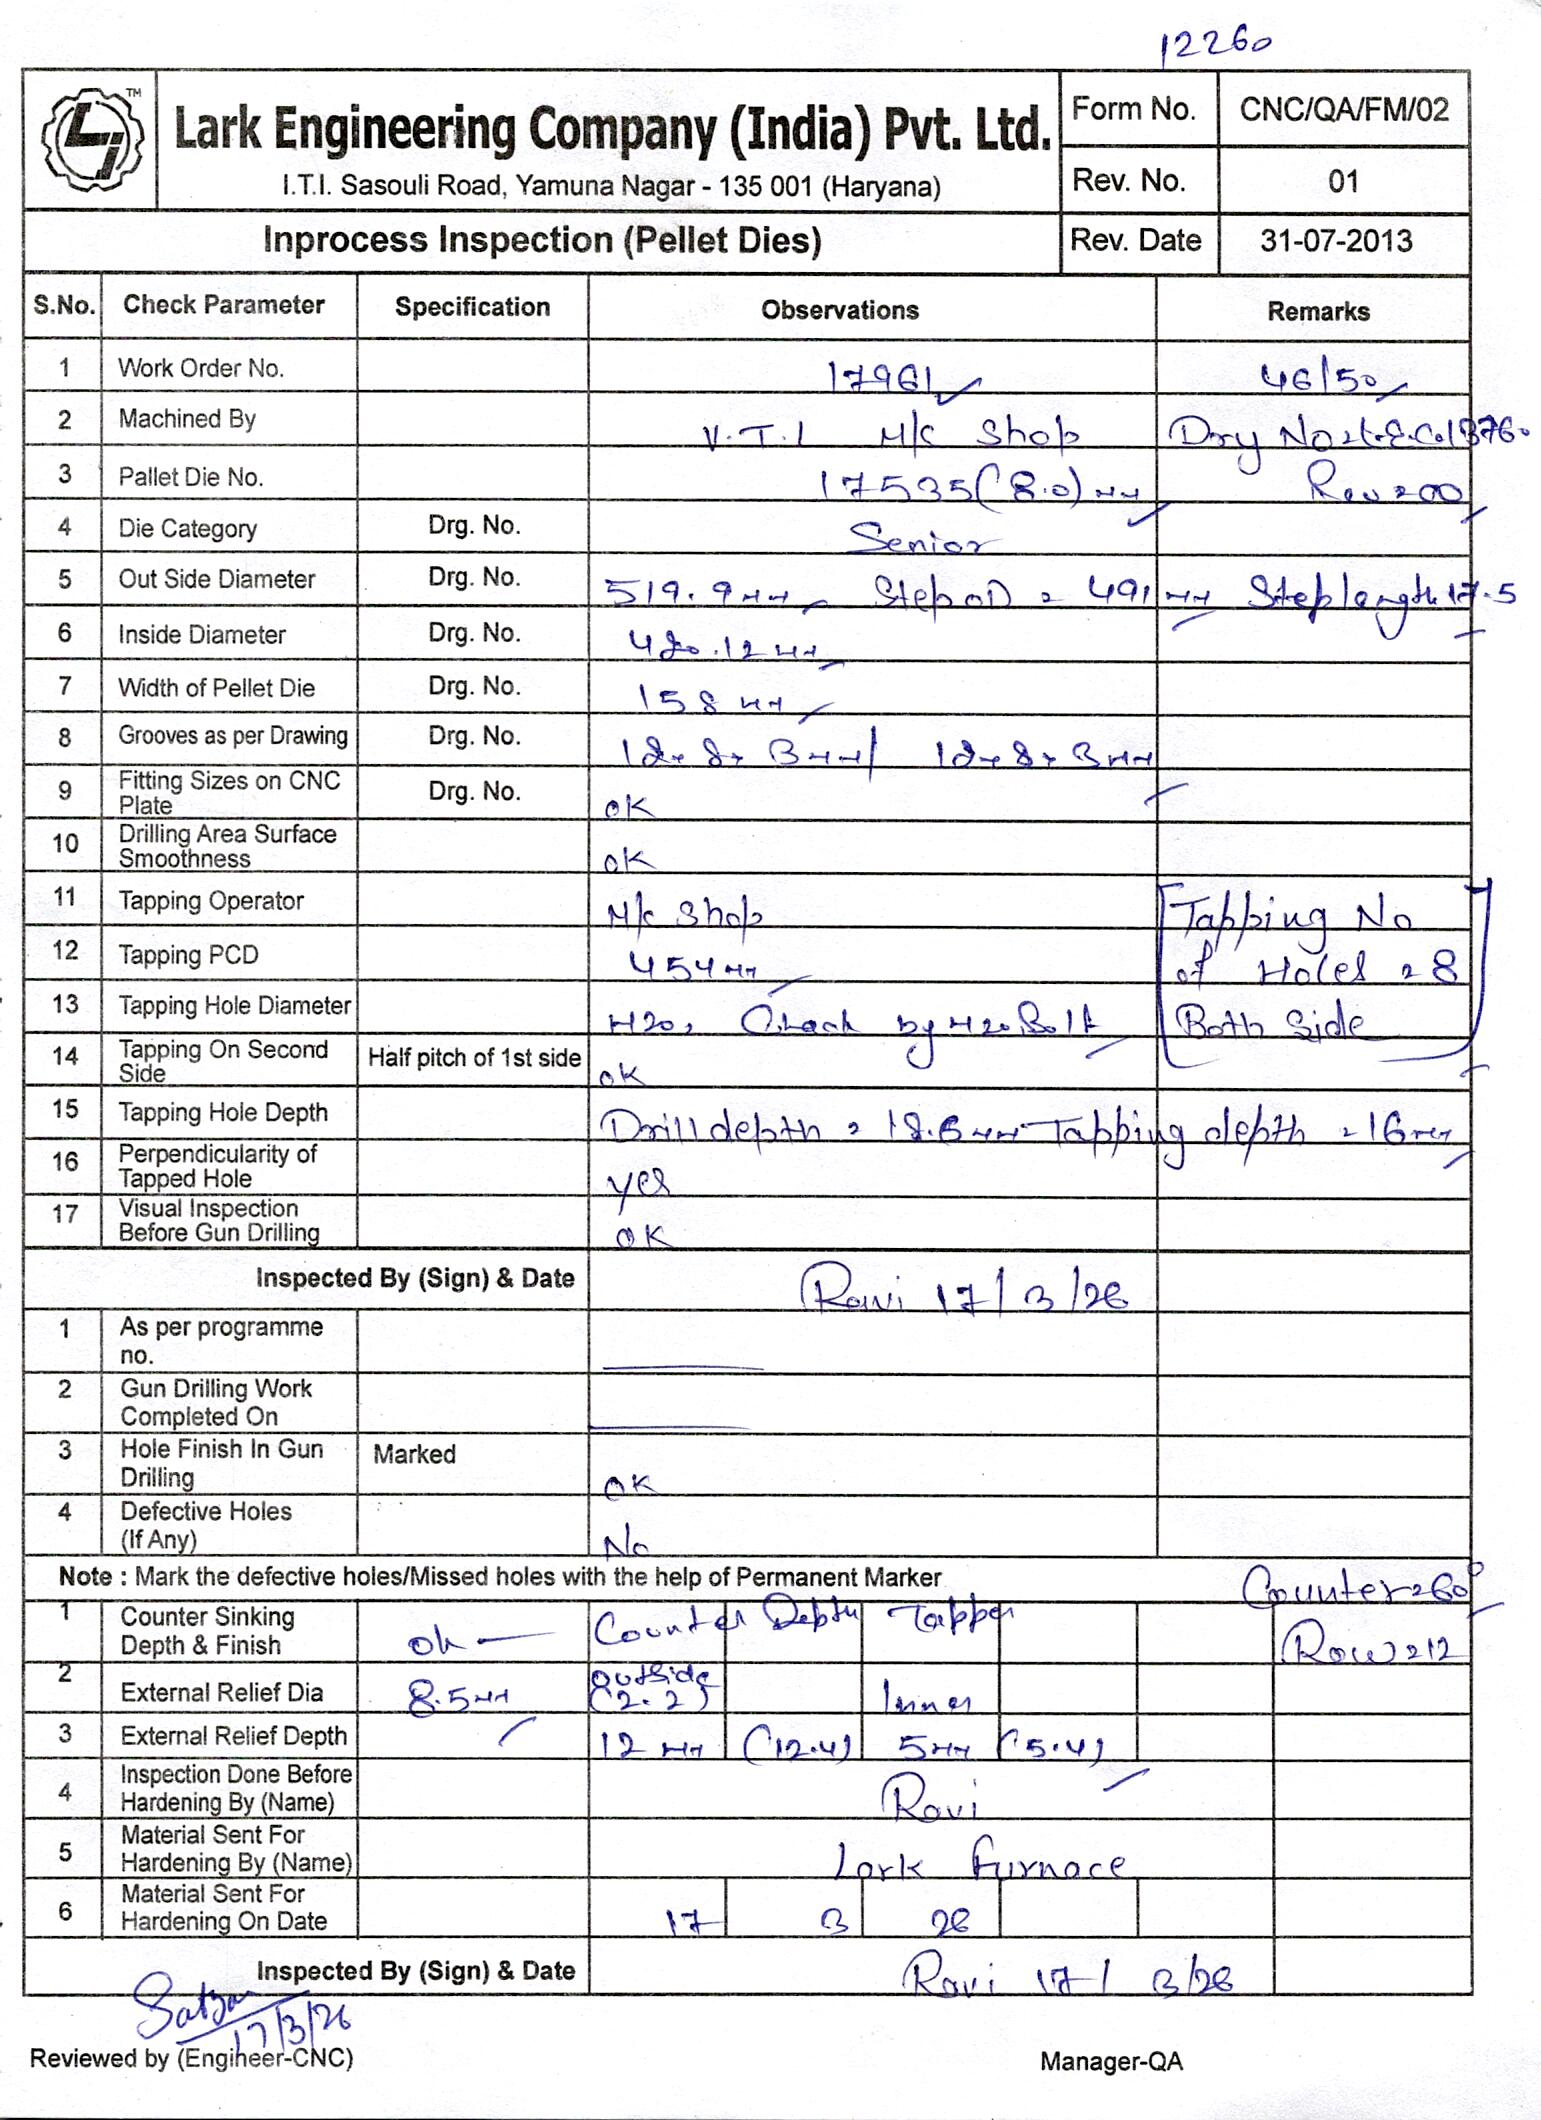 12260
TM
Lark Engineering Company (India) Pvt. Ltd.
I.T.I. Sasouli Road, Yamuna Nagar - 135 001 (Haryana)
Form No. CNC/QA/FM/02
Rev. No. 01
Inprocess Inspection (Pellet Dies)
Rev. Date 31-07-2013
S.No. Check Parameter Specification Observations Remarks
1 Work Order No. 17961 46/50
2 Machined By V.T.L M/C Shop
3 Pallet Die No. 17535 (8.0) mm Rev = 00
4 Die Category Drg. No. Senior
5 Out Side Diameter Drg. No. 519.9 mm Step OD = 491 mm Step length 17.5
6 Inside Diameter Drg. No. 420.12 mm
7 Width of Pellet Die Drg. No. 158 mm
8 Grooves as per Drawing Drg. No.
9 Fitting Sizes on CNC Plate Drg. No. OK
10 Drilling Area Surface Smoothness OK
11 Tapping Operator M/c Shop Tapping No
12 Tapping PCD 454 mm of Holes = 8
13 Tapping Hole Diameter M20, Check by M20 Bolt Both Side
14 Tapping On Second Side Half pitch of 1st side OK
15 Tapping Hole Depth Drill depth = 18.6 mm Tapping depth = 16 mm
16 Perpendicularity of Tapped Hole yes
17 Visual Inspection Before Gun Drilling OK
Inspected By (Sign) & Date Ravi 17/3/26
1 As per programme no.
2 Gun Drilling Work Completed On
3 Hole Finish In Gun Drilling Marked OK
4 Defective Holes (If Any) No
Note : Mark the defective holes/Missed holes with the help of Permanent Marker
Counter = 60°
1 Counter Sinking Depth & Finish ok Counter Depth Tapper Row = 12
2 External Relief Dia 8.5 mm outside (2.2) Inner
3 External Relief Depth 12 mm (12.4) 5 mm (5.4)
4 Inspection Done Before Hardening By (Name) Ravi
5 Material Sent For Hardening By (Name) Lark Furnace
6 Material Sent For Hardening On Date 17 3 26
Inspected By (Sign) & Date Ravi 17/3/26
17/3/26
Reviewed by (Engineer-CNC) Manager-QA